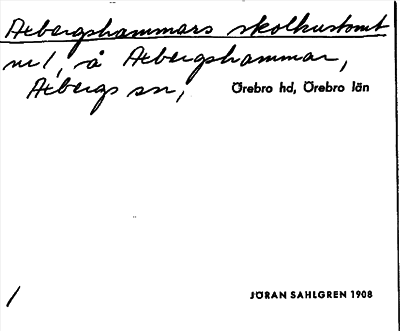 Axbergshammars skolhustomt
nr 1, å Axbergshammar,
Axbergs sn, Örebro hd, Örebro län
/
JÖRAN SAHLGREN 1908